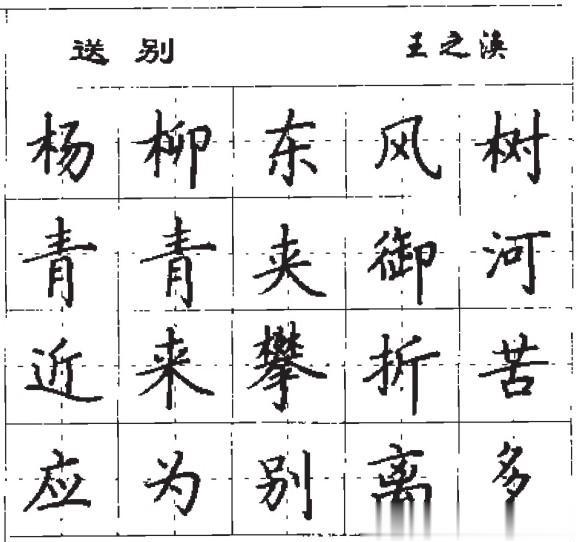 送别 王之涣
杨柳东风树
青青夹御河
近来攀折苦
应为别离多